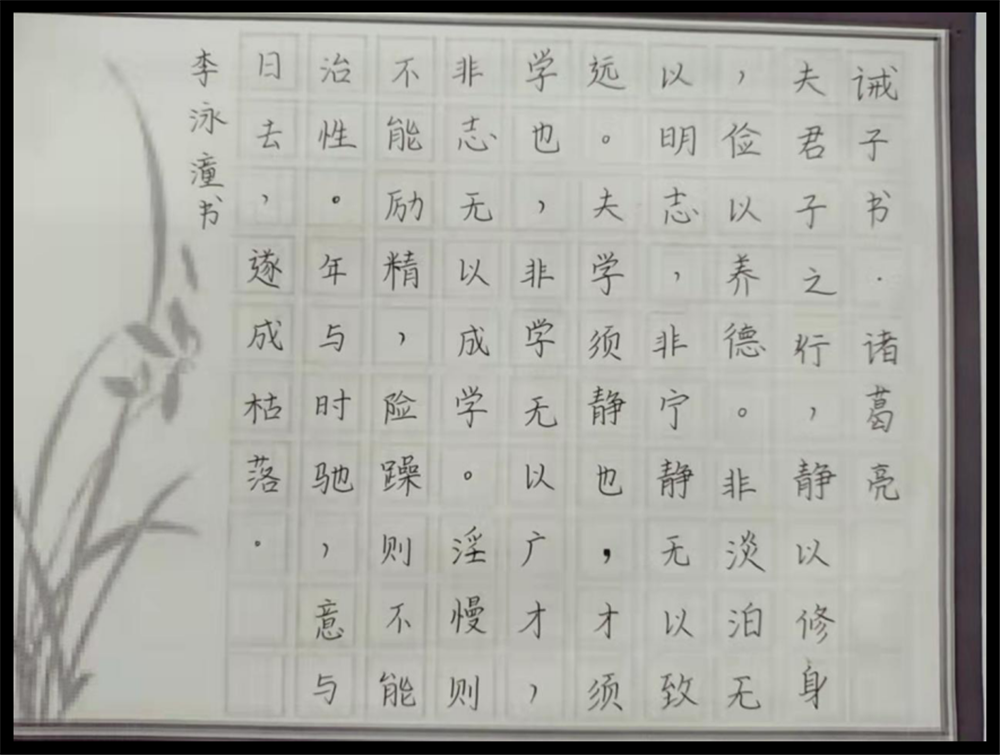 诫子书·诸葛亮
夫君子之行，静以修身
，俭以养德。非淡泊无
以明志，非宁静无以致
远。夫学须静也，才须
学也，非学无以广才，
非志无以成学。淫慢则
不能励精，险躁则不能
治性。年与时驰，意与
日去，遂成枯落。
李泳潼书